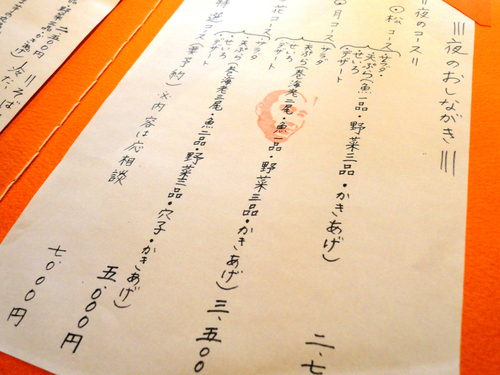 夜のおしながき
=夜のコース=
◎松コース
サラダ
天ぷら(魚一品・野菜三品・かきあげ)
せいろ
デザート
二、七
月コース
サラダ
天ぷら(巻海老二尾・魚一品・野菜三品・かきあげ)
せいろ
デザート
三、五00
花コース
サラダ
天ぷら(巻海老三尾・魚二品・野菜三品・穴子・かきあげ)
せいろ
デザート
五、000円
特選コース(要予約)※内容は応相談
七、000円
=そば